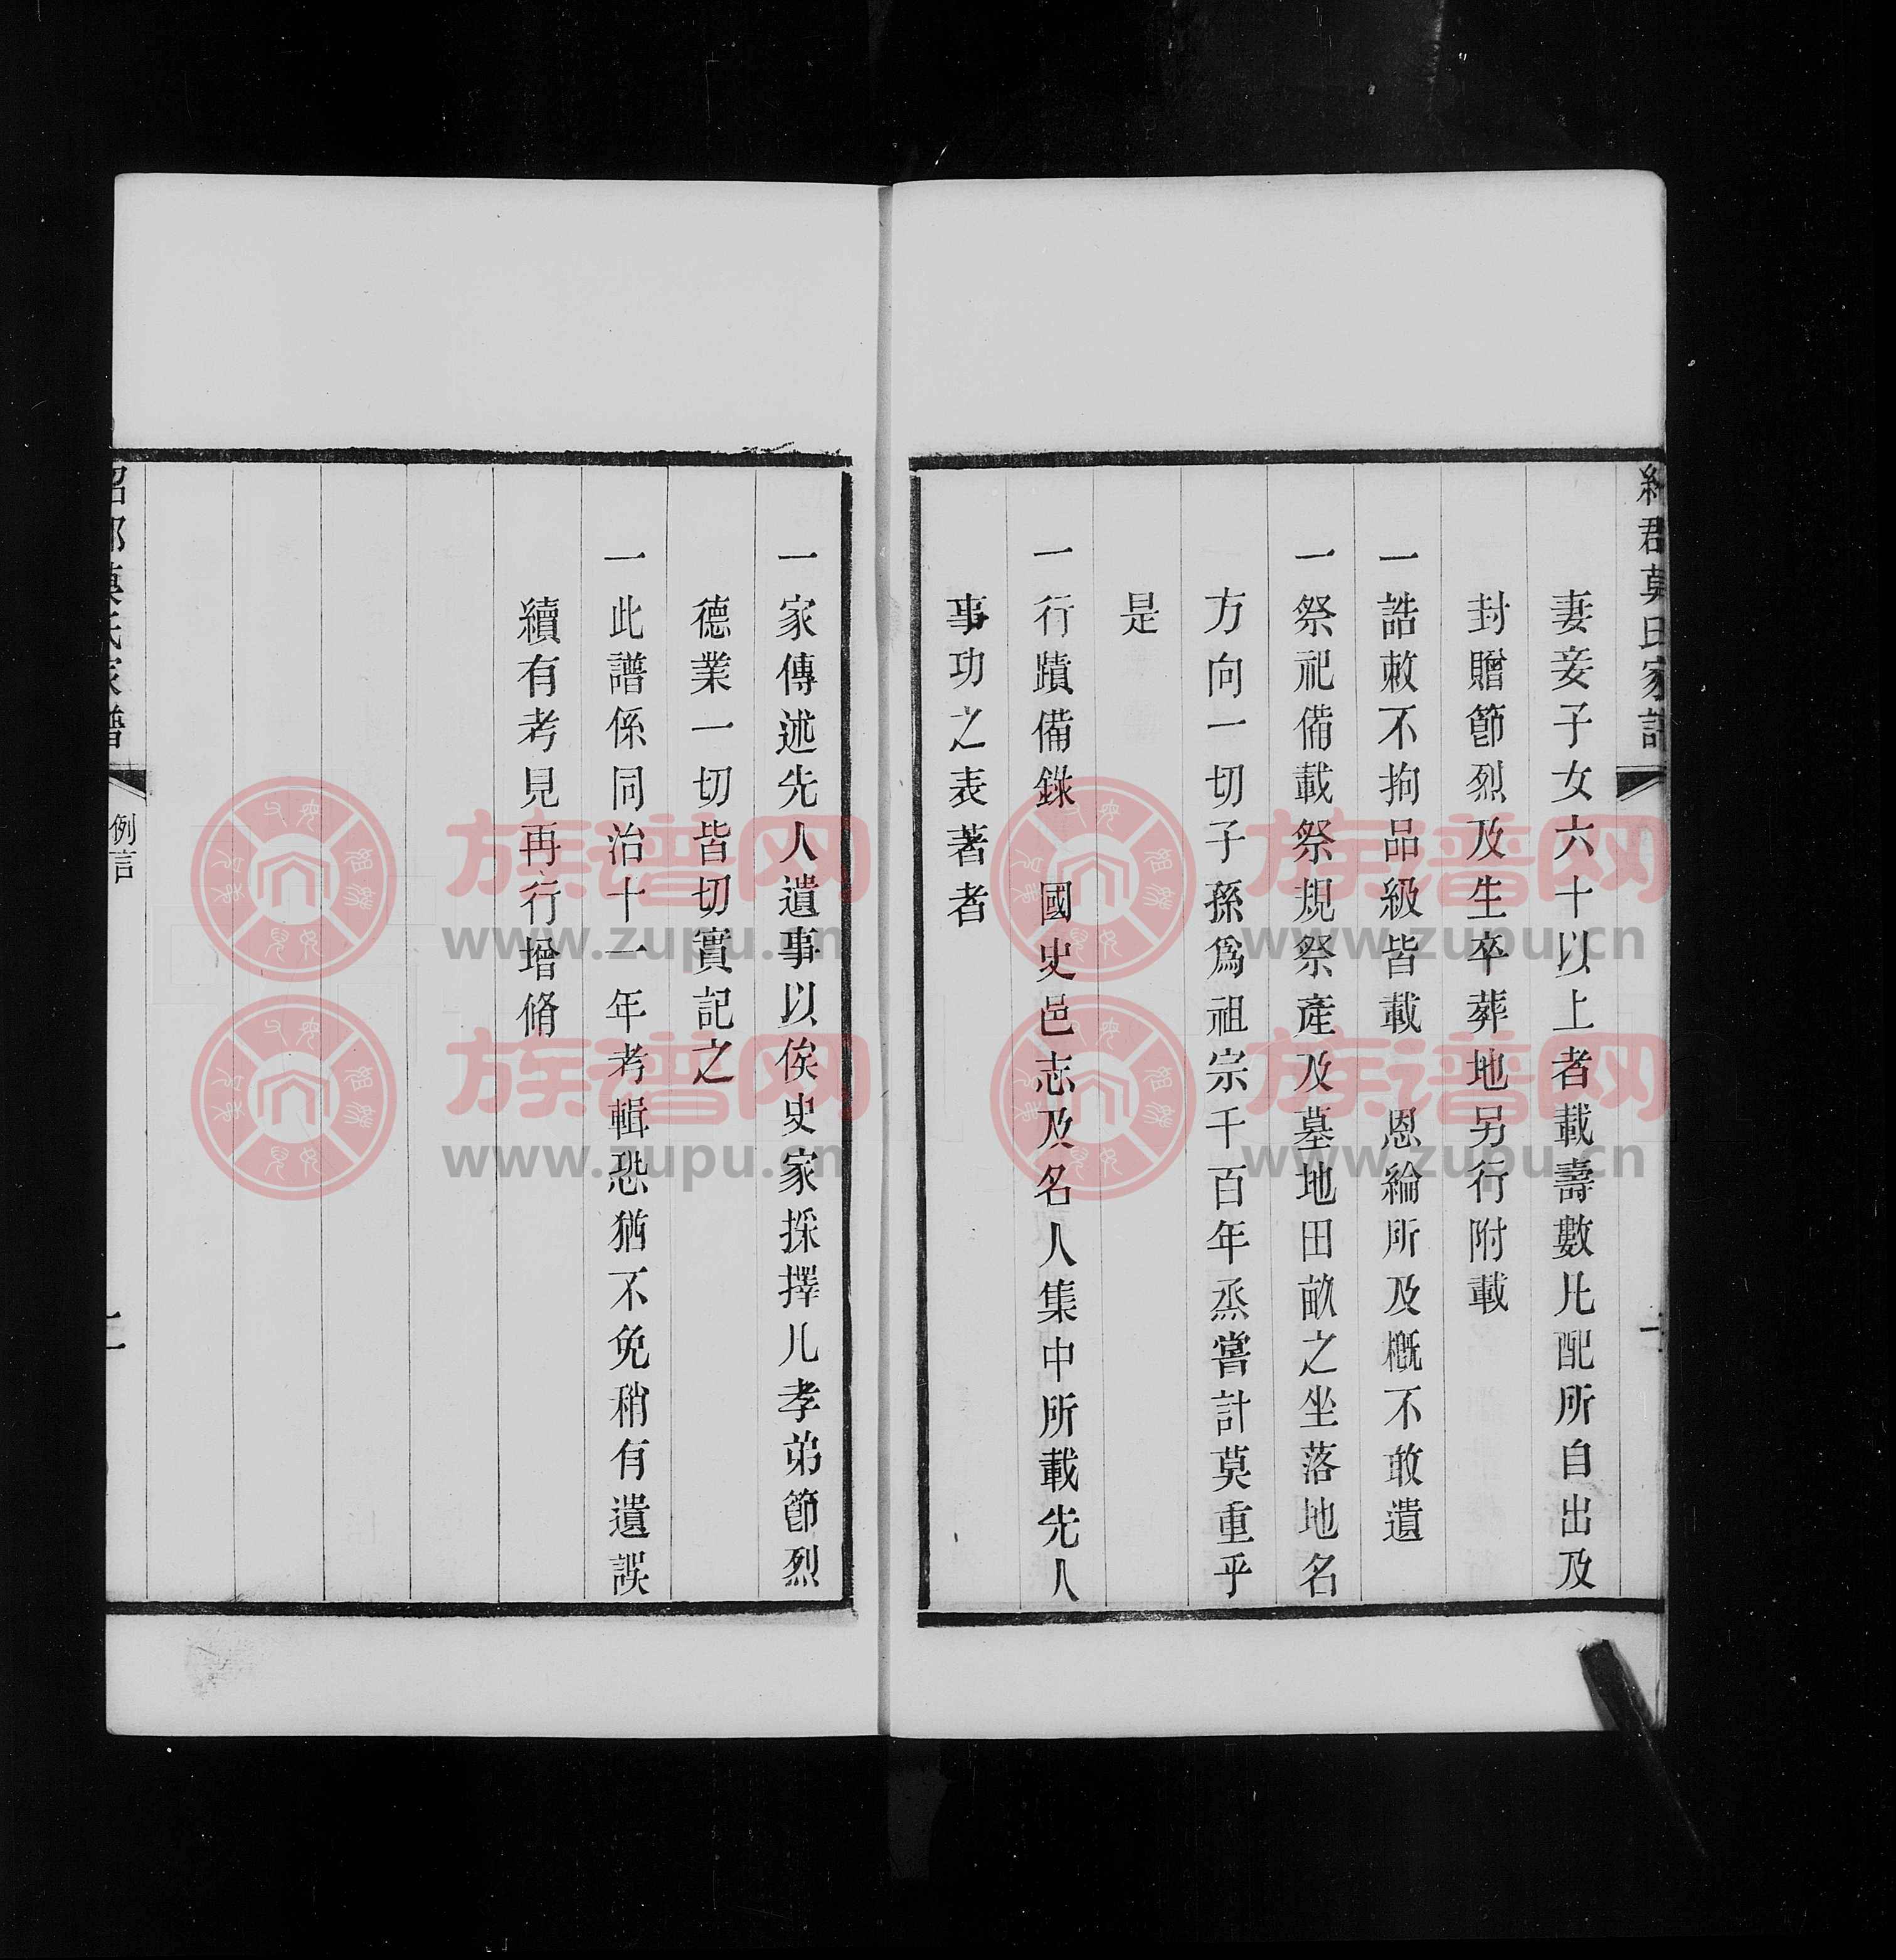 妻妾子女六十以上者載壽數凡配所自出及
封贈節烈及生卒葬地另行附載
一誥敕不拘品級皆載　恩綸所及概不敢遺
一祭祀備載祭規祭產及墓地田畝之坐落地名
方向一切子孫為祖宗千百年烝嘗計莫重乎
是
一行蹟備錄　國史邑志及名人集中所載先人
事功之表著者
一家傳述先人遺事以俟史家採擇凡孝弟節烈
德業一切皆切實記之
一此譜係同治十一年考輯恐猶不免稍有遺誤
續有考見再行增脩
紹郡莫氏家譜
例言
族谱网
www.zupu.cn
族谱网
www.zupu.cn
族谱网
www.zupu.cn
族谱网
www.zupu.cn